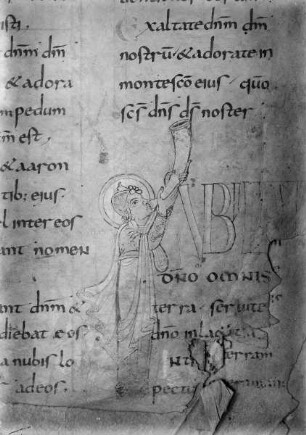 isti.
dñm dm̄
& adora
mpedum
m̄ est.
& aaron
tib: eius.
el inter eos
ant nomen
ant dñm &
diebat eos.
a nubis lo
adeos.
Exaltate dñm dm̄
nostrū & adorate in
monte scō eius. quō
scs̄ dn̄s ds̄ noster
VBILA
DŃO OMNIS
terra. seruite
dño inla
terram